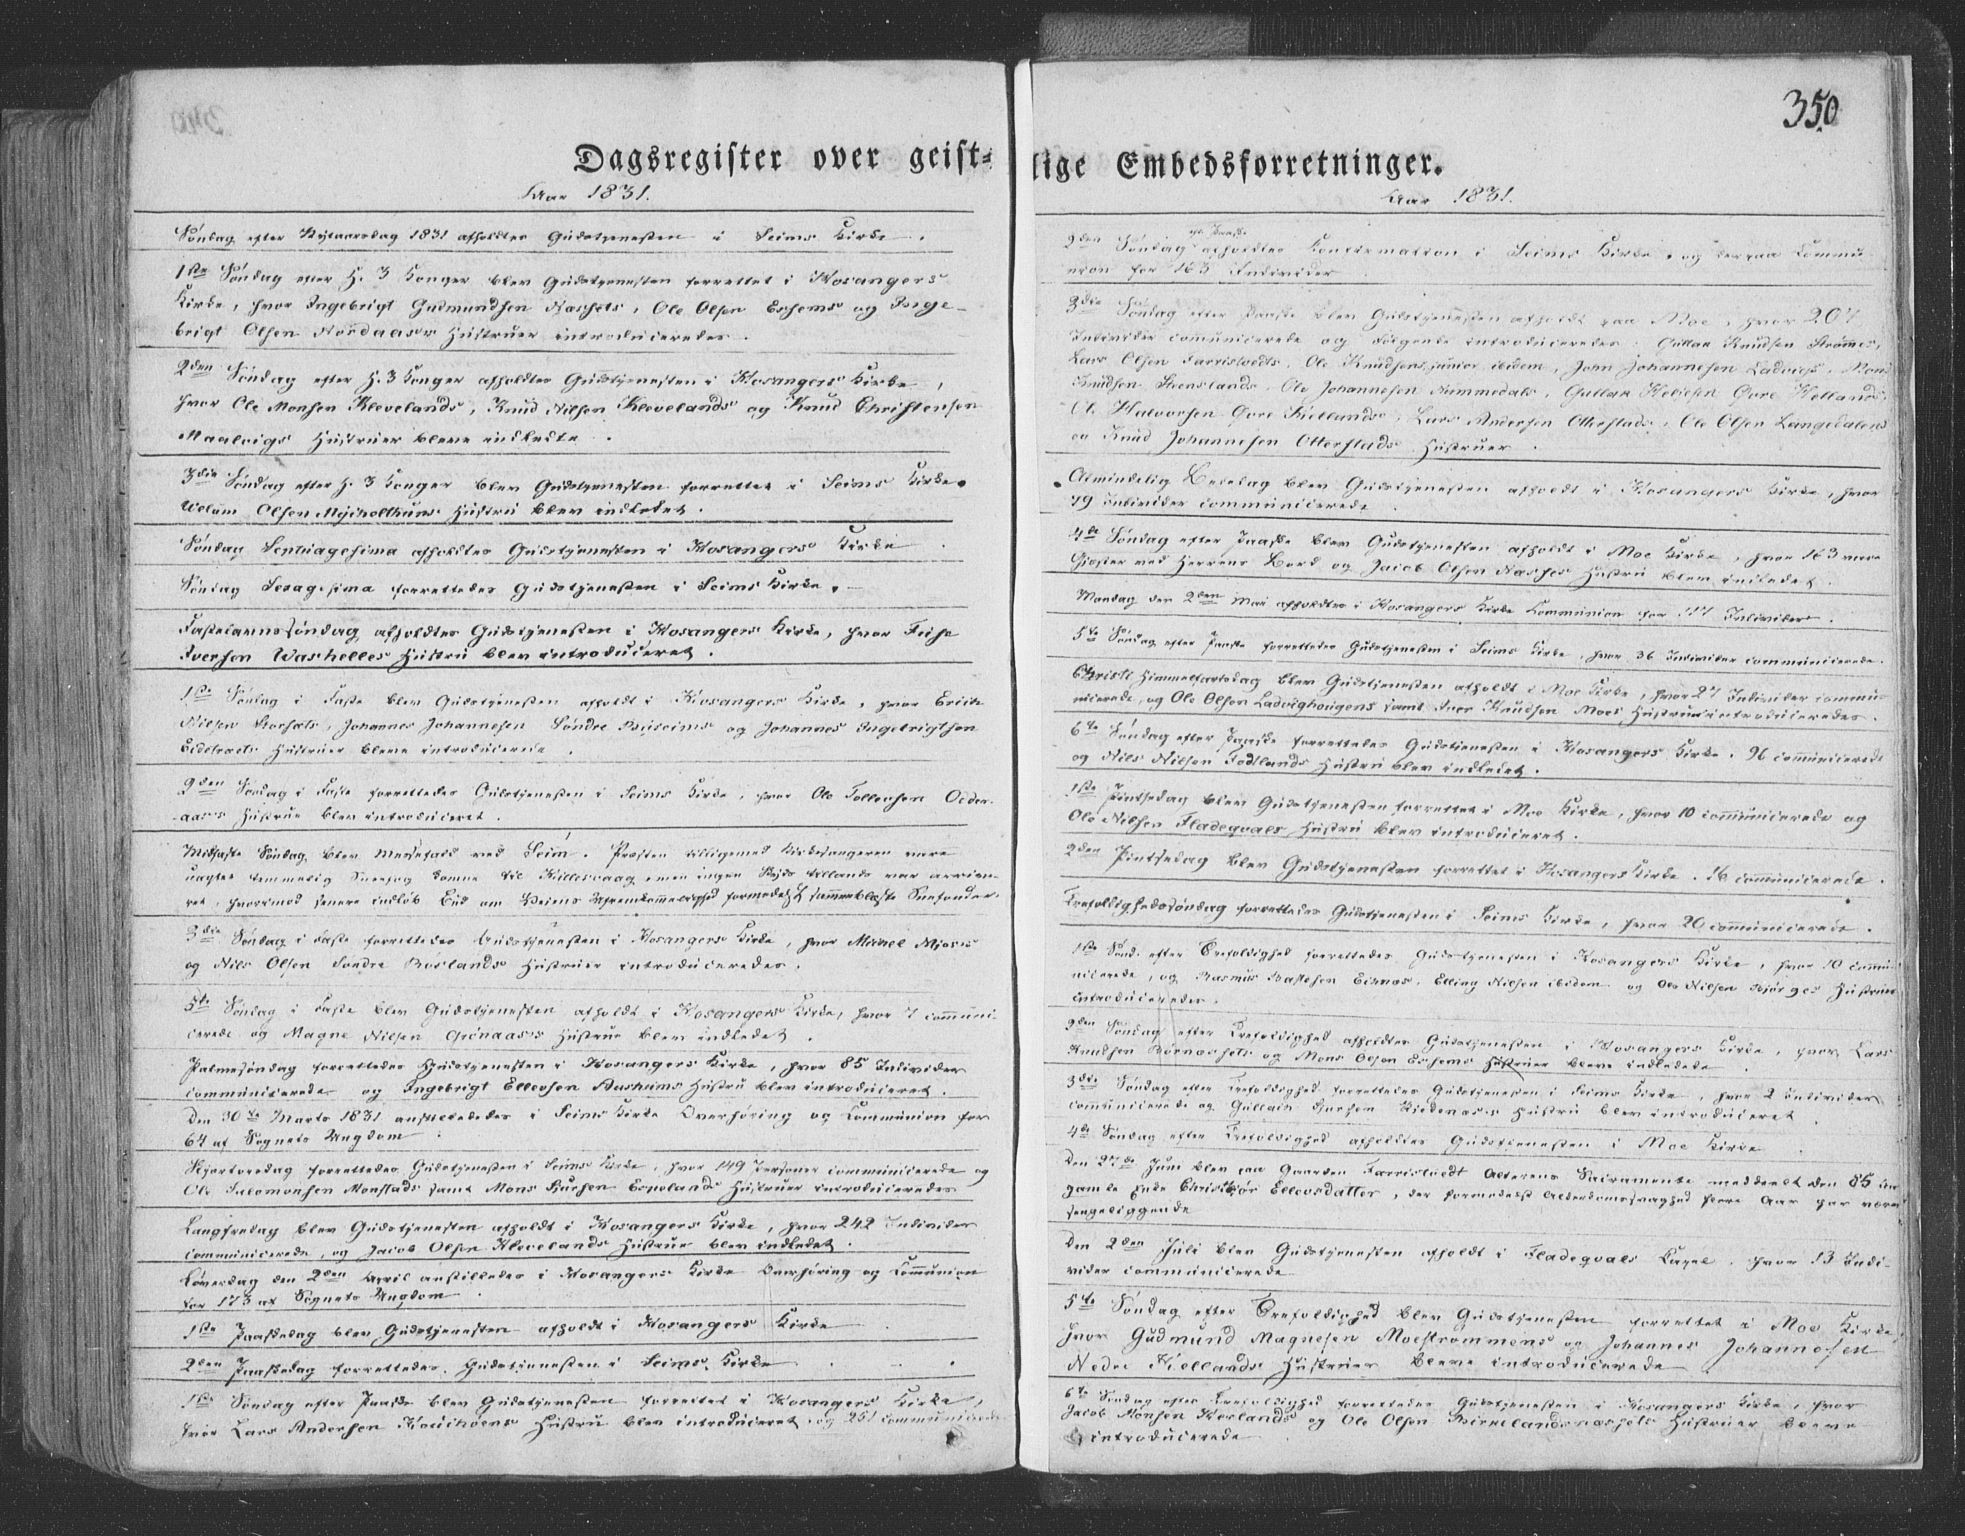 350
Dagsregister over geist-
lige Embedsforretninger.
Aar 1831.
Søndag efter Nytaarsdag 1831 afholdtes Gudstjenesten i Seims Kirke.
1ste Søndag efter H. 3 Konger blev Gudstjenesten forrettet i Hosangers
Kirke, hvor Ingebrigt Gudmundsen Ole Olsen Eshems og Inge-
brigt Olsen Nordaases Hustruer introduceredes.
2den Søndag efter H. 3 Konger afholdtes Gudstjenesten i Hosangers Kirke,
hvor Ole Monsen Klevelands, Knud Nilsen Klevelands og Knud Christensen
Maalvigs Hustruer bleve indledte.
3die Søndag efter H. 3 Konger blev Gudstjenesten forrettet i Seims Kirke.
Olsen Hustru blev indledet.
Søndag Septuagesima afholdtes Gudstjenesten i Hosangers Kirke
Søndag Sexagesima forrettedes Gudstjenesten i Seims Kirke.
Fastelavnssøndag afholdtes Gudstjenesten i Hosangers Kirke, hvor
Iversen Hustru blev introduceret.
1ste Søndag i Faste blev Gudstjenesten afholdt i Hosangers Kirke, hvor
Nilsen Johannes Johannesen Søndre og Johannes Ingebrigtsen
Hustruer bleve introducerede.
2den Søndag i Faste forrettedes Gudstjenesten i Seims Kirke, hvor Ole Tollevsen Odder-
aases Hustrue blev introduceret.
Midfaste Søndag blev Messefald ved Seim. Præsten tilligemed Kirkesangeren vare
uagtet temmelig Snefog komne til men ingen Skyds tillands var
ret, hvorimod senere indløb Bud om Veiens formedelst sammenblæste Snefonder.
3die Søndag i Faste forrettedes Gudstjenesten i Hosangers Kirke, hvor Michel
og Nils Olsen Søndre Hustruer introduceredes.
5te Søndag i Faste blev Gudstjenesten afholdt i Hosangers Kirke, hvor 7 communi-
cerede og Magne Nilsen Hustrue blev indledet.
Palmesøndag forrettedes Gudstjenesten i Hosangers Kirke, hvor 85 Individer
communicerede og Ingebrigt Ellevsen Hustru blev introduceret.
Den 30te Marts 1831 anstilledes i Seims Kirke Overhøring og Communion for
64 af Sognets Ungdom.
Skjærtorsdag forrettedes Gudstjenesten i Seims Kirke, hvor 149 Personer communicerede og
Ole Salomonsen Monstads samt Mons Espelands Hustruer introduceredes
Langfredag blev Gudstjenesten afholdt i Hosangers Kirke, hvor 242 Individer
communicerede, og Jacob Olsen Klevelands Hustrue blev indledet.
Løverdag den 2den April anstilledes i Hosangers Kirke Overhøring og Communion
for 173 af Sognets Ungdom.
1ste Paaskedag blev Gudstjenesten afholdt i Hosangers Kirke
2den Paaskedag forrettedes Gudstjenesten i Seims Kirke
1ste Søndag efter Paaske blev Gudstjenesten forrettet i Hosangers Kirke,
hvor Lars Andersen Hustru blev introduceret, og 251 communicerede
Aar 1831.
2den Søndag eft. Paaske afholdtes Confirmation i Seims Kirke, og derpaa Commu
nion for 163 Individer
3die Søndag efter Paaske blev Gudstjenesten afholdt paa Moe, hvor 207
Individer communicerede og Følgende introduceredes: Gullak Knudsen Strømes,
Lars Olsen Farristvedts, Ole Knudsens junior ibidem, John Johannesen Ladvigs, Mons
Knudsen Stenslands, Ole Johannesen Rimmedals, Gullak Øvre Hellands,
Ole Halvorsen Øvre Kiellands, Lars Andersen Otterstads, Ole Olsen Langedalens
og Knud Johannesen Otterstads Hustruer.
Almindelig Bededag blev Gudstjenesten afholdt i Hosangers Kirke, hvor
79 Individer communicerede
4de Søndag efter Paaske blev Gudstjenesten afholdt i Moe Kirke, hvor 163 vare
Giæster ved Herrens Bord og Jacob Olsen Hustru blev indledet.
Mandag den 2den Mai afholdtes i Hosangers Kirke Communion for 117 Individer.
5te Søndag efter Paaske forrettedes Gudstjenesten i Seims Kirke, hvor 36 Individer communicerede.
Christi Himmelfartsdag blev Gudstjenesten afholdt i Moe Kirke, hvor 27 Individer commu-
nicerede, og Ole Olsen Ladvighougens samt Iver Knudsen Moes Hustruer introduceredes.
6te Søndag efter Paaske forrettedes Gudstjenesten i Hosangers Kirke. 96 communicerede
og Nils Nilsen Fodtlands Hustru blev indledet.
1ste Pintsedag blev Gudstjenesten forrettet i Moe Kirke, hvor 10 communicerede og
Ole Nilsen Fladeqvals Hustru blev introduceret.
2den Pintsedag blev Gudstjenesten forrettet i Hosangers Kirke. 16 communicerede.
Trefoldighedssøndag forrettedes Gudstjenesten i Seims Kirke, hvor 20 communicerede.
1ste Sønd. efter Trefoldighed forrettedes Gudstjenesten i Hosangers Kirke, hvor 10 commu-
nicerede, og Rasmus Eknæs, Elling Nilsen ibidem og Ole Nilsen Hustruer
introduceredes.
2den Søndag efter Trefoldighed afholdtes Gudstjenesten i Hosangers Kirke, hvor Lars
Knudsen og Mons Olsen Eshems Hustruer bleve indledede.
3die Søndag efter Trefoldighed forrettedes Gudstjenesten i Seims Kirke, hvor 2 Individer
communicerede og Hustru blev introduceret.
4de Søndag efter Trefoldighed afholdtes Gudstjenesten i Moe Kirke
Den 27de Juni blev paa Gaarden Farristvedt Alterens Sacramente meddeelt den 85 Aar
gamle Enke Ellevsdatter, der formedelst Alderdomssvaghed flere Aar har været
sengeliggende
Den 2den Juli blev Gudstjenesten afholdt i Fladeqvals Capel, hvor 13 Indi-
vider communicerede
5te Søndag efter Trefoldighed blev Gudstjenesten forrettet i Moe Kirke,
hvor Gudmund Magnesen Moestrømmens og Johannes Johannesen
Nedre Kiellands Hustruer bleve introducerede
6te Søndag efter Trefoldighed forrettedes Gudstjenesten i Hosangers Kirke, hvor
Jacob Monsen og Ole Olsen Hustruer bleve
introducerede